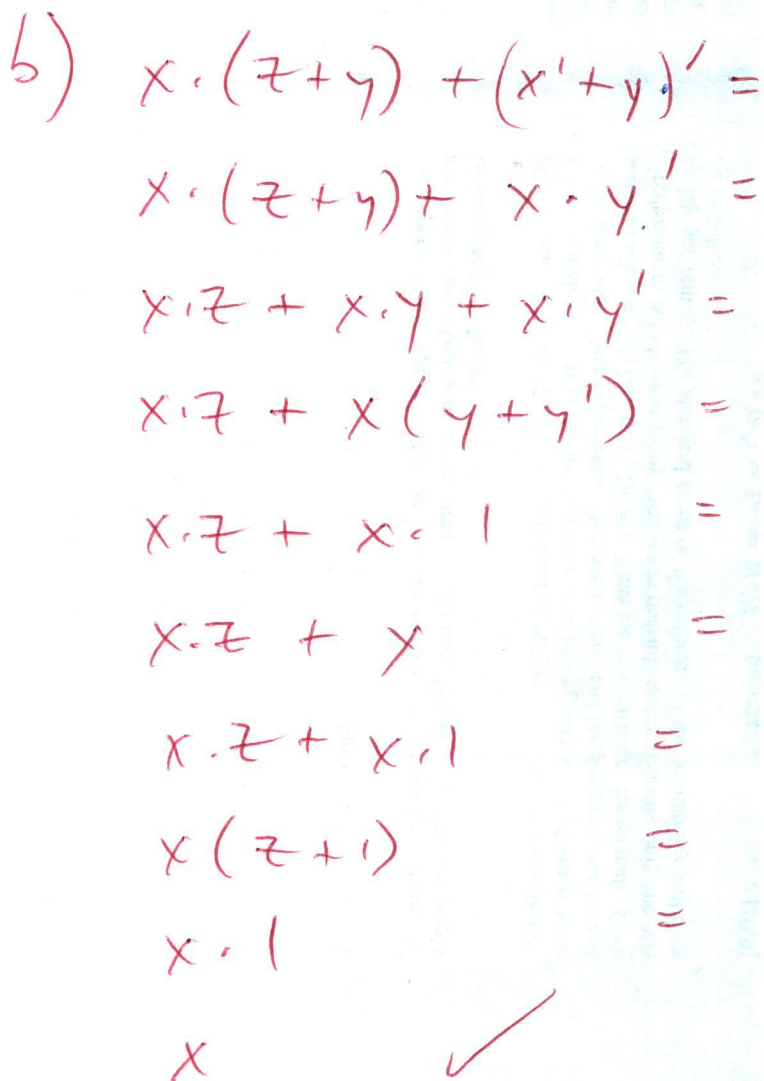 b) x·(z+y) + (x'+y)' =
x·(z+y) + x·y' =
x·z + x·y + x·y' =
x·z + x(y+y') =
x·z + x·1 =
x·z + x =
x·z + x·1 =
x(z+1) =
x·1 =
x ✓